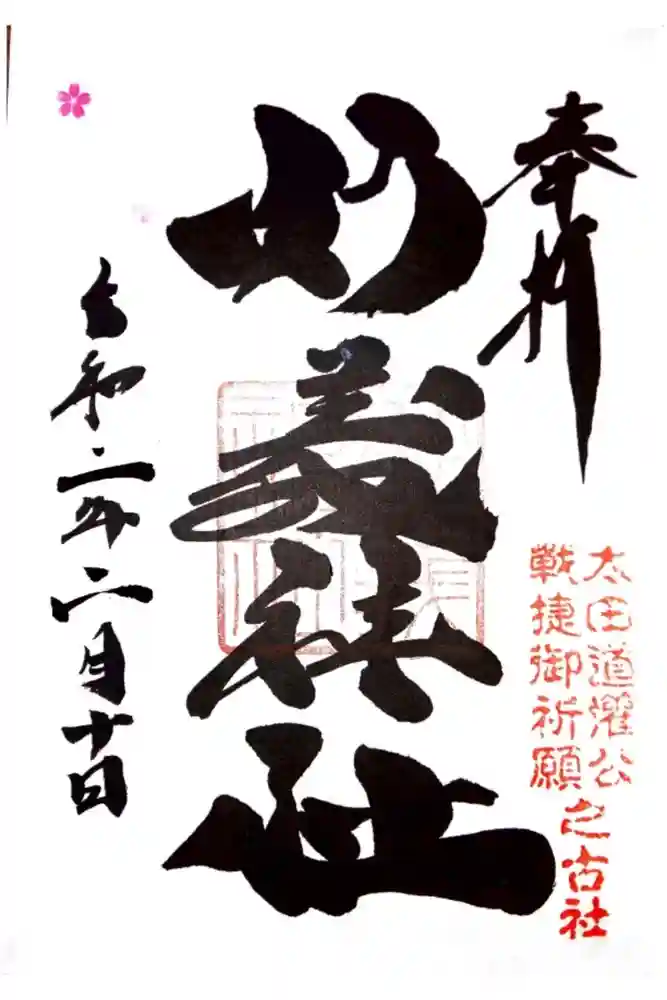 奉拝
太田道灌公
戰捷御祈願之古社
妙義神社
令和二年二月十日